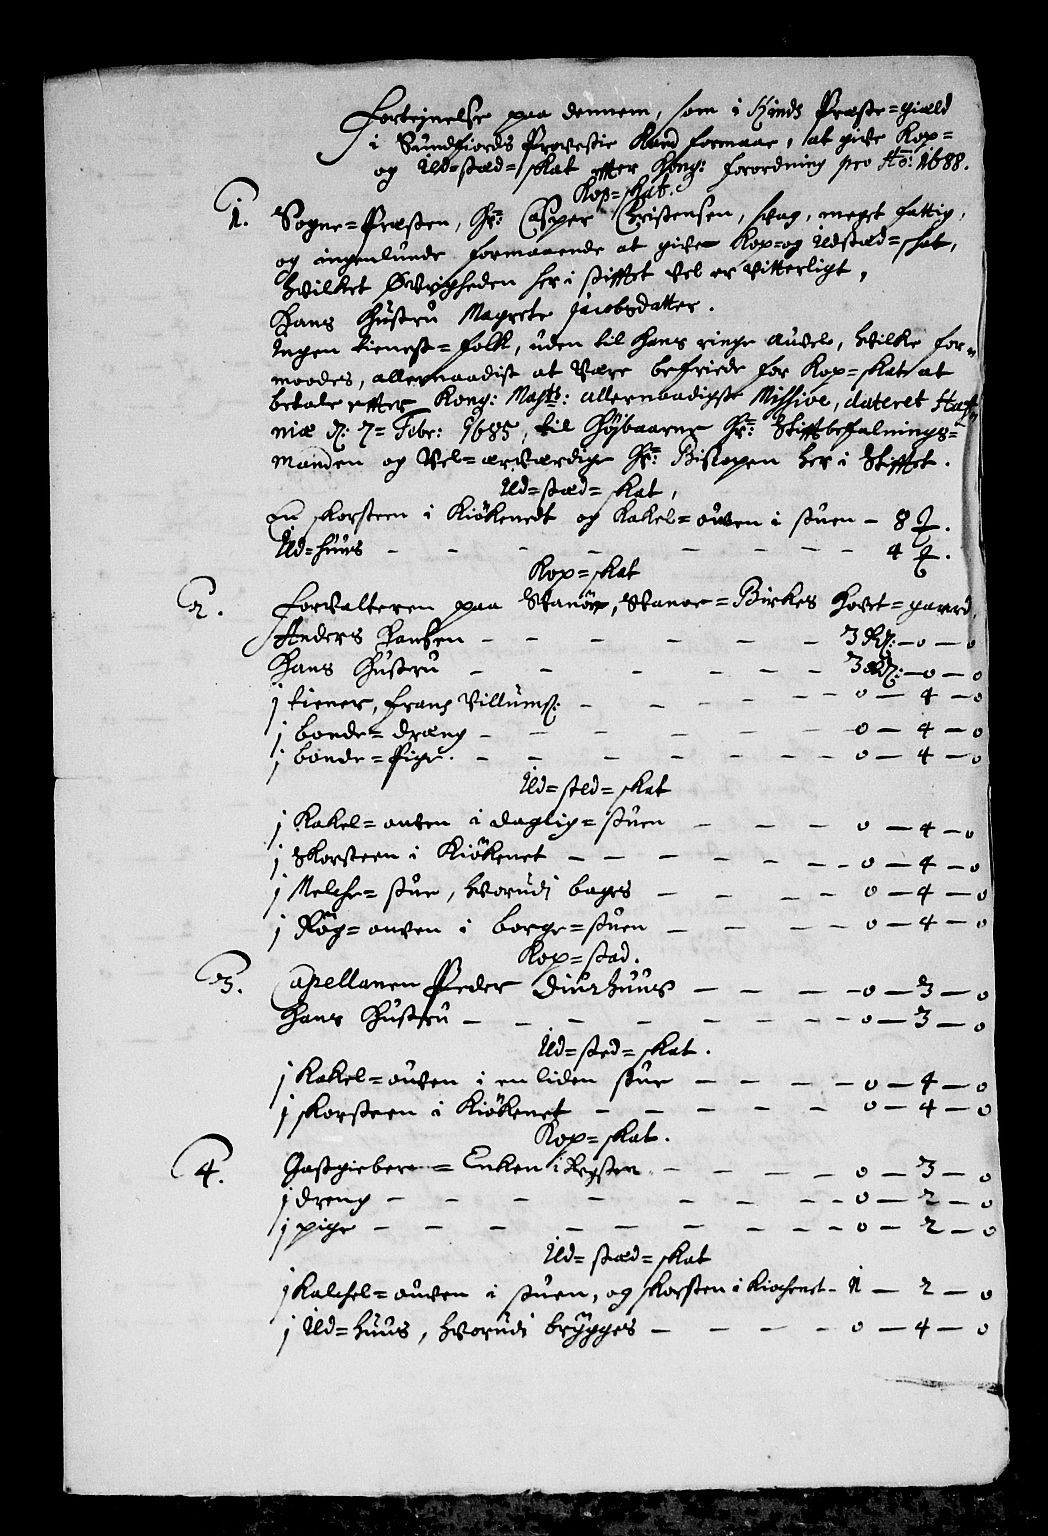 Fortejnelse paa dennem, som i Kinds Præste=giæld
i Sundfiords Provestie Kand formaae, at give Kop=
og Ild=stæd=skat effter Kong: forordning pro Ao: 1688.
Kop=skat.
1. Sogne=Præsten, Hr: Casper Christensen, svag, meget fattig,
og ingenlunde formaaende at give Kop=og Ildstæd=skat,
hvilket Øvrigheden her i stifftet vel er vitterligt,
Hans Hustru Magrete Jacobsdatter.
Ingen tienest=folk, uden til hans ringe auvel, hvilke for=
moodes, allernaadigst at være befriede for Kop=skat at
betale effter Kong: Maysts: allernaadigste Missive, dateret Haf=
niæ d: 7= Febr: 1685, til Høybaarne Hr: Stifftsbefalnings=
manden og Vel=ærværdige Hr: Biskopen her i Stifftet.
Ild=stæd=skat,
En skorsteen i Kiökenedt og Kakel=ouven i stuen — 8 ꝭ.
Ild=huus — — — — — — — 4 ꝭ.
Kop=skat
2. Forvalteren paa Svanöe, Svanoe=Birkes Hovet=gaard
Anders Hansen — — — — — 3 Rd: — o — o
Hans Hustru — — — — — 3 Rd: — o — o
j tiener, Frans Villums: — — — — o — 4 — o
j bonde=dreng — — — — — o — 4 — o
j bonde=Pige. — — — — — o — 4 — o
Ild=sted=skat
j Kakel=onven i daglig=stuen — — — o — 4 — o
j Skorsteen i Kiökenet — — — — — o — 4 — o
j Melche=stue, hvorudi bages — — — o — 4 — o
j Rög=onven i borge=stuen — — — o — 4 — o
Kop=stad.
3. Capellanen Peder Diurhuus — — — o — 3 — o
Hans Hustru — — — — — — o — 3 — o
Ild=sted=skat.
j Kakel=ouven i en liden stue — — — o — 4 — o
j skorsteen i Kiökenet — — — — — o — 4 — o
Kop=skat.
4. Gastgiebere=Enken i — — — o — 3 — o
j dreng — — — — — — o — 2 — o
j pige — — — — — — o — 2 — o
Ild=stæd=skat
j Kalchel=ouven i stuen, og skorsten i Kiochenet — 1 — 2 — o
j Ild=huus, hvorudi brygges — — — o — 4 — o